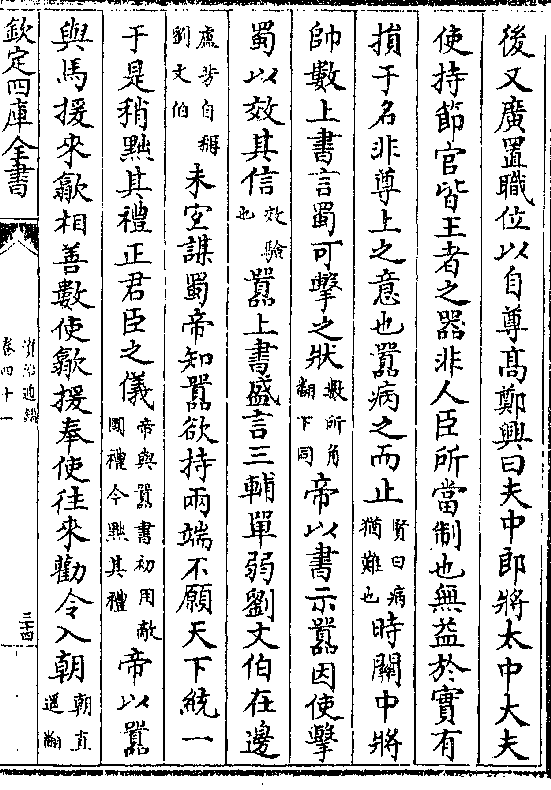 後又廣置職位以自尊髙鄭興曰夫中郎將太中大夫
使持節官皆王者之器非人臣所當制也無益於實有
損于名非尊上之意也囂病之而止賢曰病猶難也時關中將
帥數上書言蜀可擊之狀數所角翻下同帝以書示囂因使擊
蜀以效其信效驗也囂上書盛言三輔單弱劉文伯在邊
盧芳自稱劉文伯未宜謀蜀帝知囂欲持兩端不願天下統一
于是稍黜其禮正君臣之儀帝與囂書初用敵國禮今黜其禮帝以囂
與馬援來歙相善數使歙援奉使往來勸令入朝朝直遥翻
欽定四庫全書
資治通鑑
卷四十一
三十四